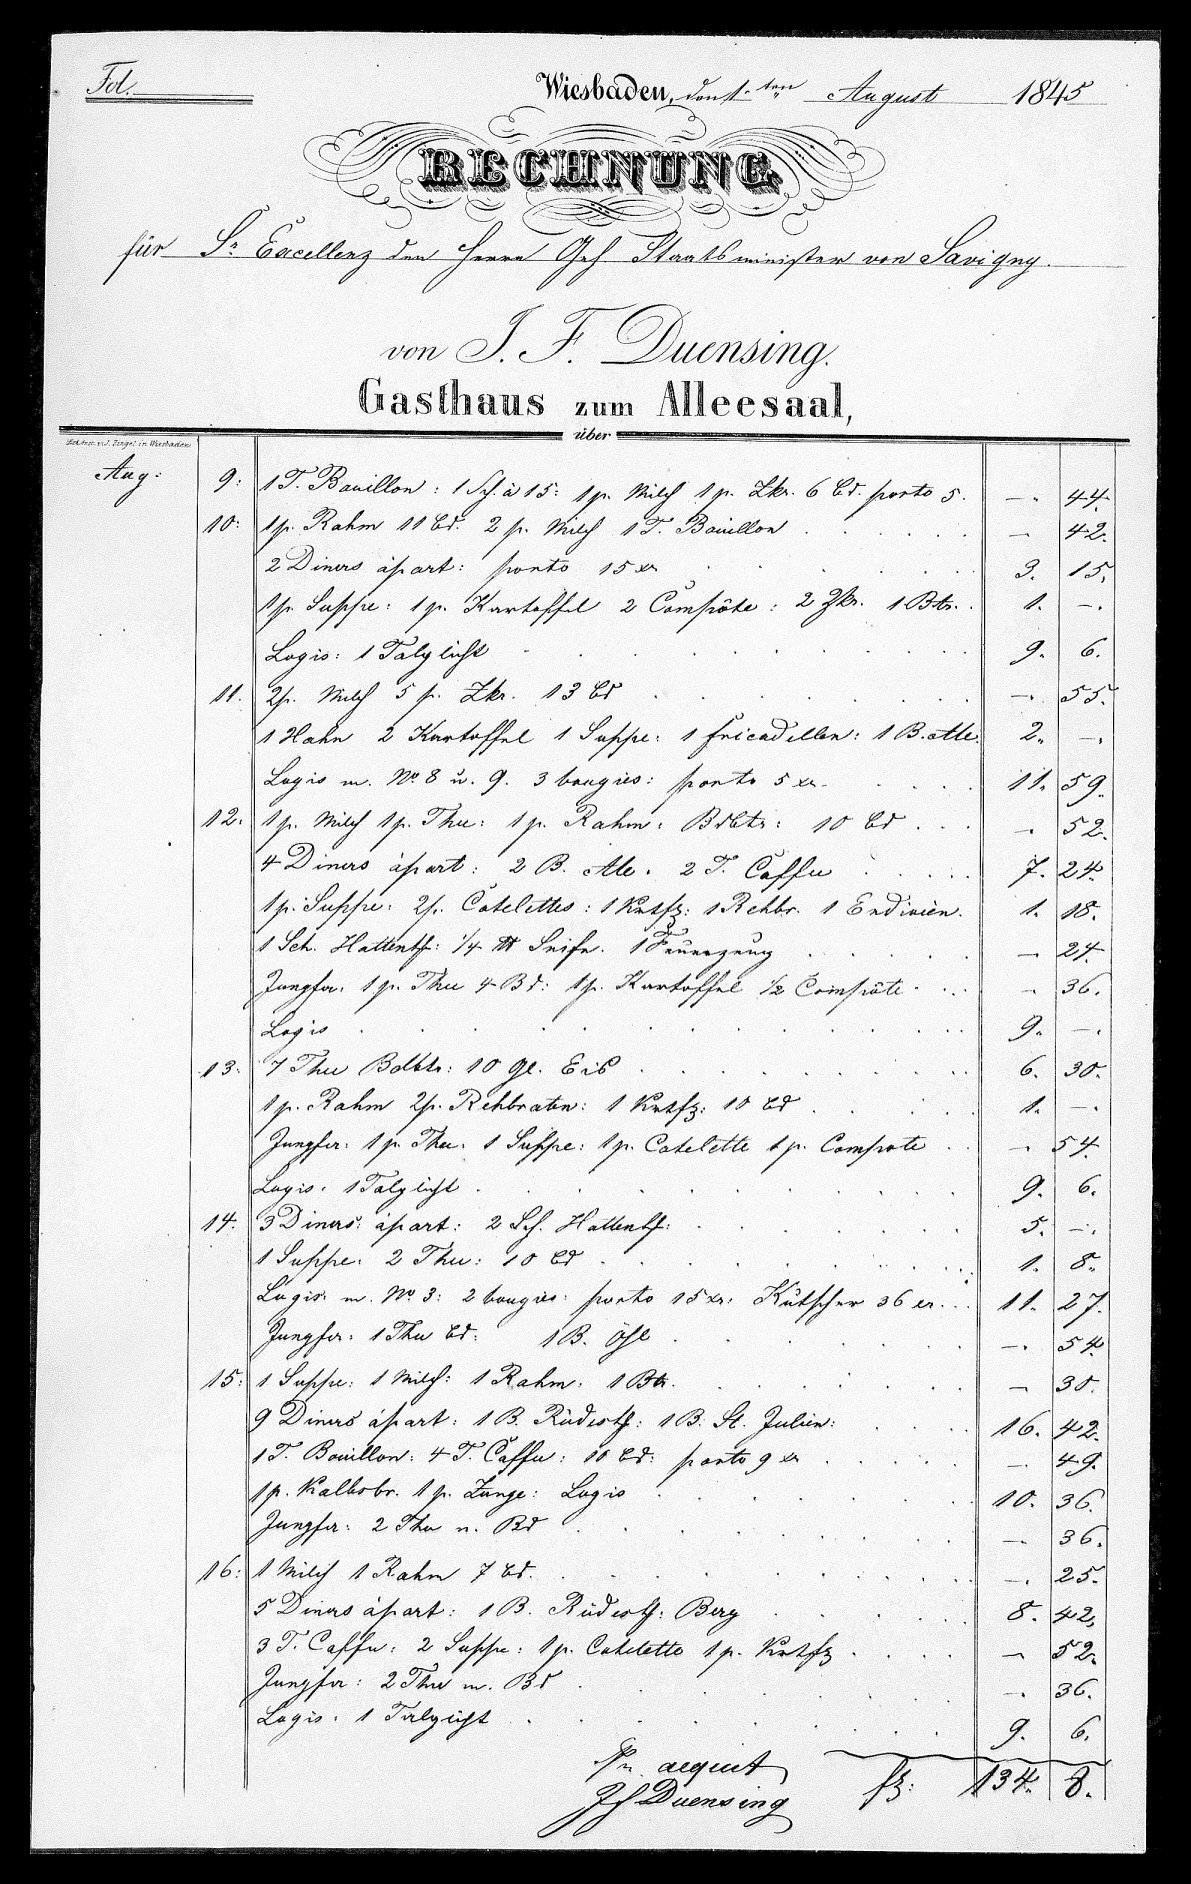 Fol.
Wiesbaden, den ten August 1845
RECHNUNG
für Sr. Excellenz den Herrn Geh Staatsminister von Savigny.
von J. F. Duensing.
Gasthaus zum Alleesaal,
über
Aug: 9: 1 T. Bouillon: 1 Sch. à 15: 1 p. Milch 1 p. Zkr. 6 Bd. porto 5. —. 44.
10: 1 p. Rahm 11 Bd. 2 p. Milch 1 T. Bouillon — 42.
2 Diners àpart: porto 15 xr 3. 15.
1 p. Suppe: 1 p. Kartoffel 2 Compôte: 2 Zkr. 1 Btr. 1. —.
Logis: 1 Talglicht 9. 6.
11. 2 p. Milch 5 p. Zkr. 13 Bd —. 55.
1 Hahn 2 Kartoffel 1 Suppe: 1 fricadellen: 1 B. Ale. 2. —.
Logis m. No. 8 u. 9. 3 bougies: porto 5 xr. 11. 59.
12. 1 p. Milch 1 p. Thee: 1 p. Rahm: Bdbtr: 10 Bd —. 52.
4 Diners àpart: 2 B. Ale. 2 T. Caffee 7. 24.
1 p. Suppe: 2 p. Cotelettes: 1 1 Rehbr. 1 Endivièn. 1. 18.
1 Sch. ¼ ℔ Seife. 1 Feuerzeug — 24.
Jungfer. 1 p. Thee 4 Bd: 1 p. Kartoffel ½ Compôte — 36.
Logis 9. —.
13. 7 Thee Bdbtr: 10 Gl. Eis 6. 30.
1 p. Rahm 2 p. Rehbraten: 1 10 Bd 1. —.
Jungfer: 1 p. Thee. 1 Suppe: 1 p. Cotelette 1 p. Compote — 54.
Logis. 1 Talglicht 9. 6.
14. 3 Diners: àpart: 2 Sch. 5. —.
1 Suppe. 2 Thee: 10 Bd 1. 8.
Logis: m. No. 3: 2 bougies: porto 15 xr: Kutscher 36 xr. 11. 27.
Jungfer: 1 Thee Bd: 1 B. —. 54
15: 1 Suppe: 1 Milch: 1 Rahm. 1 Btr. — 30.
9 Diners àpart: 1 B. Rüdesh: 1 B: St. Julien: 16. 42.
1 T. Bouillon: 4 T. Caffee: 10 Bd: porto 9 xr —. 49.
1 p. Kalbsbr. 1 p. Zunge: Logis 10. 36.
Jungfer: 2 Thee u. Bd —. 36.
16: 1 Milch 1 Rahm 7 Bd. —. 25.
5 Diners àpart: 1 B. Rüdesh: Berg 8. 42.
3 T. Caffee: 2 Suppe: 1 p. Cotelette 1 p. — 52.
Jungfer: 2 Thee m. Bd —. 36.
Logis. 1 Talglicht 9. 6.
fl: 134. 8.
Duensing